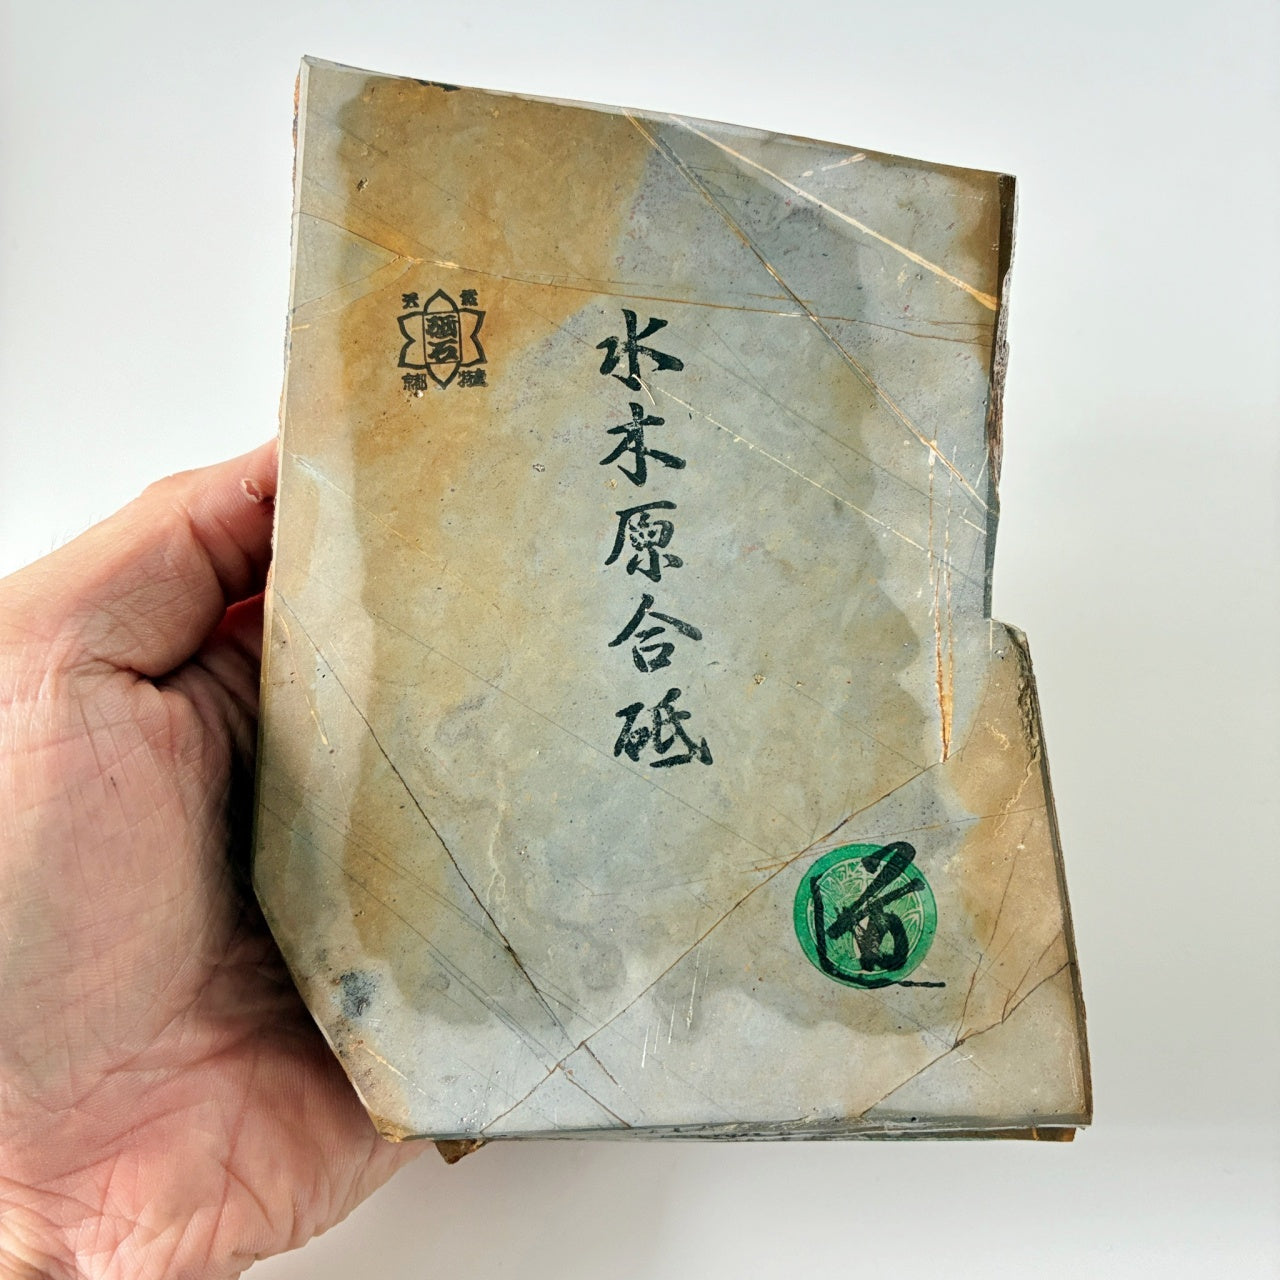 天然
砥石
京都特産
水木原合砥